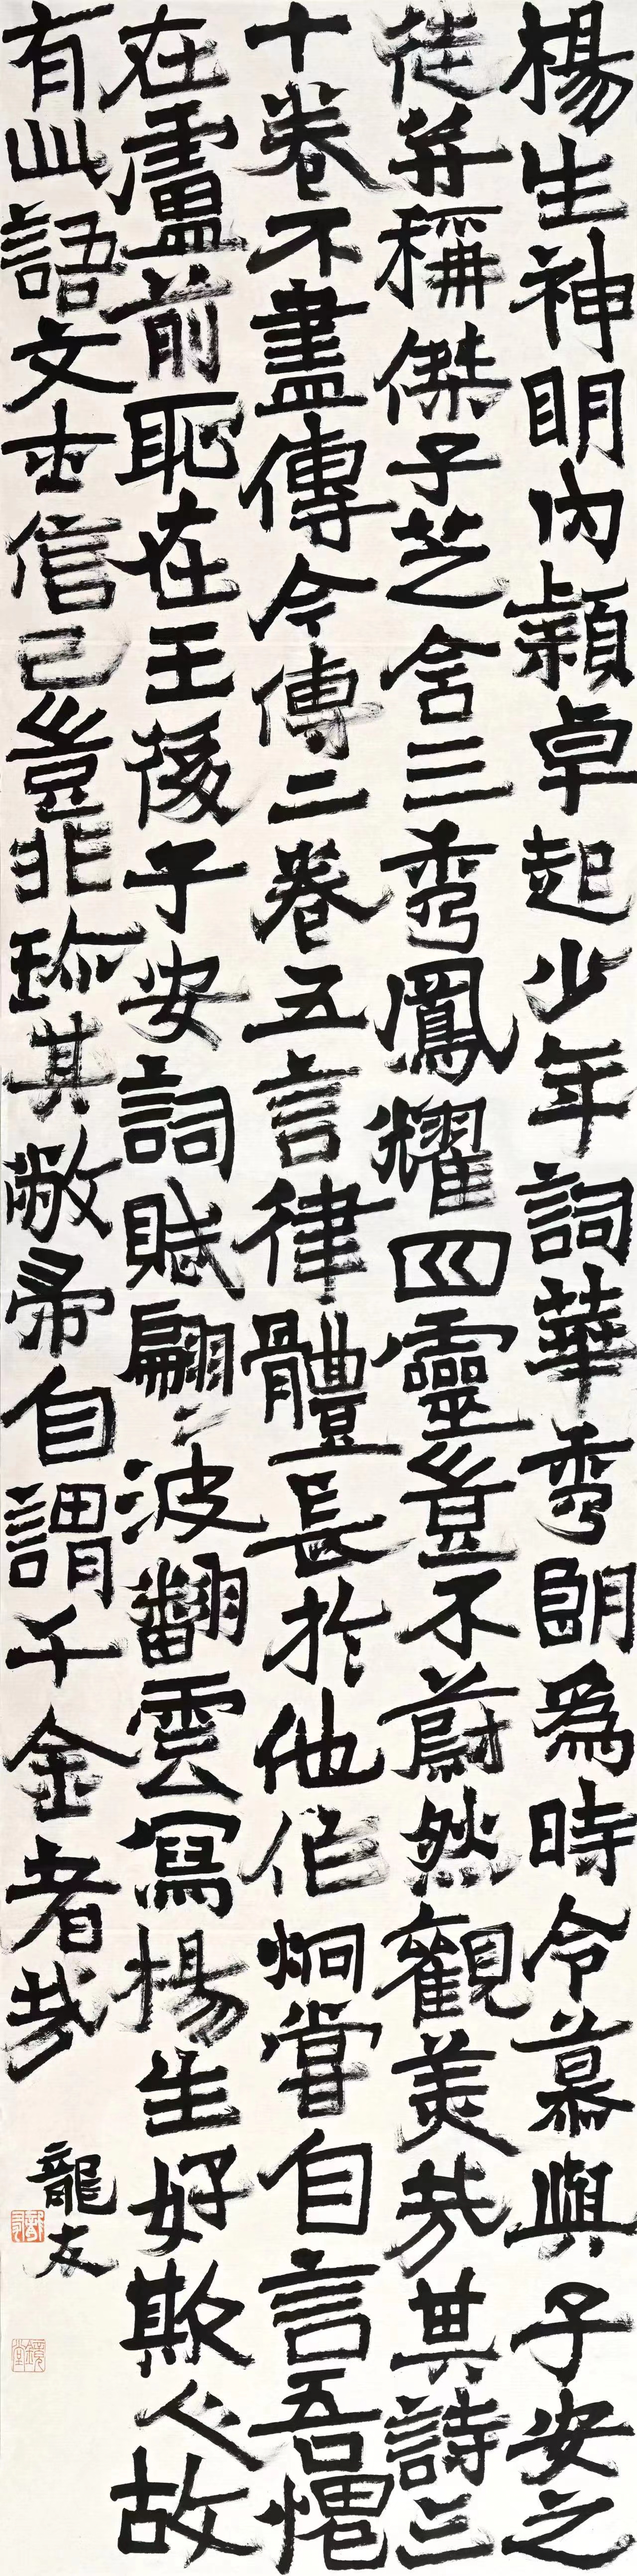 楊生神明內穎卓起少年詞華秀朗為時令慕與子安之
徒并稱傑子芝含三秀鳳耀四靈豈不蔚然觀美哉其詩三
十卷不盡傳今傳二卷五言律體長於他作炯嘗自言吾愧
在盧前恥在王後子安詞賦翩〻波翻雲寫楊生好欺人故
有此語文士信己豈非珍其敝帚自謂千金者哉
龍友